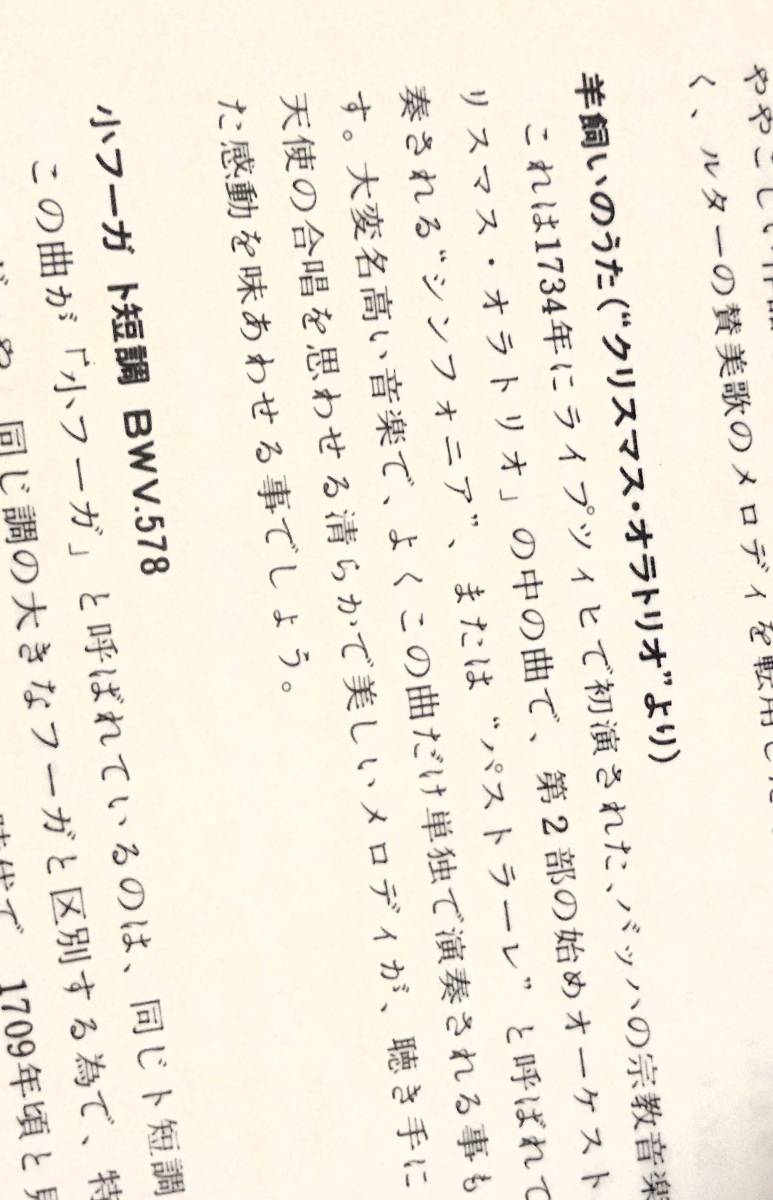 ややこしい作品
く、ルターの賛美歌のメロディを転用した
羊飼いのうた(“クリスマス・オラトリオ”より)
これは1734年にライプツィヒで初演された、バッハの宗教音楽
リスマス・オラトリオ」の中の曲で、第2部の始めオーケスト
奏される“シンフォニア”、または“パストラーレ”と呼ばれて
す。大変名高い音楽で、よくこの曲だけ単独で演奏される事も
天使の合唱を思わせる清らかで美しいメロディが、聴き手に
た感動を味あわせる事でしょう。
小フーガ ト短調 BWV.578
この曲が「小フーガ」と呼ばれているのは、同じト短調
同じ調の大きなフーガと区別する為で、特
時代で、1709年頃と見